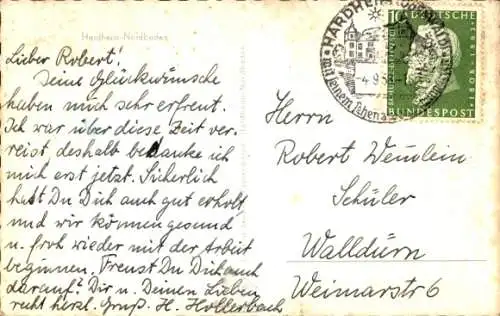 Hardheim - Nordbaden
Lieber Robert!
Deine Glückwünsche
haben mich sehr erfreut.
Ich war über diese Zeit ver-
reist, deshalb bedanke ich
mich erst jetzt. Sicherlich
hast Du Dich auch gut erholt
und wir können gesund
u. froh wieder mit der Arbeit
beginnen. Freust Du Dich auch
darauf? Dir u. Deinen Lieben
recht herzl. Gruß H. Hollerbach
HARDHEIM
4.9.58
mit seinem
10
DEUTSCHE
BUNDESPOST
Herrn
Robert Weinlein
Schüler
Walldürn
Weimarstr 6